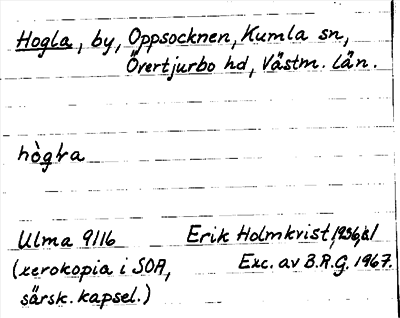 Hogla, by, Oppsocknen, Kumla sn,
Övertjurbo hd, Västm. län.
hògla
Ulma 9116 Erik Holmkvist, 1936,
(xerokopia i SOA, Exc. av B.R.G. 1967.
särsk. kapsel.)